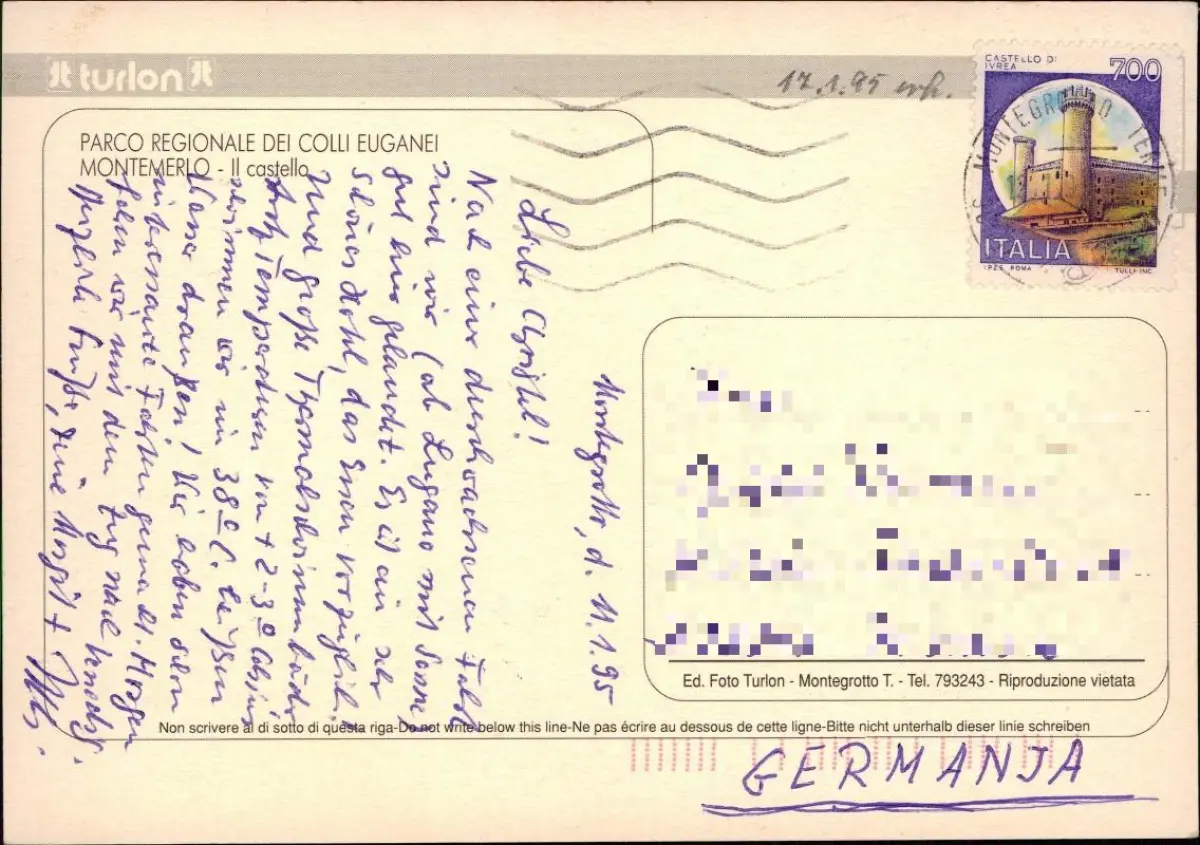 turlon
17.1.95 erh.
CASTELLO DI
IVREA
700
MONTEGROTTO TERME
ITALIA
I.P.Z.S. ROMA
TULLI INC.
PARCO REGIONALE DEI COLLI EUGANEI
MONTEMERLO - Il castello
Montegrotto, d. 11.1.95
Liebe Christel!
Nach einer durchwachsenen Fahrt
sind wir (ab Lugano mit Sonne)
gut hier gelandet. Es ist ein sehr
schönes Hotel, das Essen vorzüglich
und große Thermalschwimmbäder.
Acht Temperaturen von + 2-3° Celsius
schwimmen wir im 38° C. heißen
Wasser draußen! Wir haben schon
interessante Fahrten gemacht. Morgen
fahren wir mit dem Zug nach Venedig.
Herzliche Grüße, Deine Margit +
Ed. Foto Turlon - Montegrotto T. - Tel. 793243 - Riproduzione vietata
Non scrivere al di sotto di questa riga-Do not write below this line-Ne pas écrire au dessous de cette ligne-Bitte nicht unterhalb dieser linie schreiben
GERMANJA